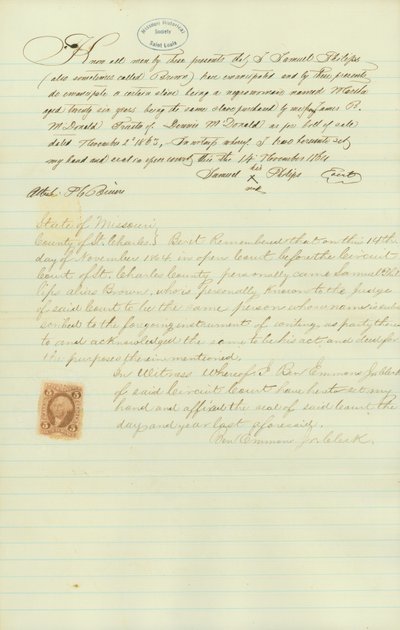 Missouri Historical
Society
Saint Louis
Know all men by these presents that I Samuel Philips
(also sometimes called Brown) have emancipated and by these presents
do emancipate a certain slave being a negro woman named Martha
aged twenty six years being the same slave purchased by me from James R.
McDonald Trustee of Dennis McDonald as per bill of sale
dated November 2d 1863, In witness whereof I have hereunto set
my hand and seal in open court this the 14 November 1864
his
Samuel X Philips (seal)
mark
Attest
State of Missouri
County of St. Charles } Be it Remembered that on this 14th
day of November 1864 in open Court before the Circuit
Court of St. Charles County, personally came Samuel Phil
lips alias Brown, who is personally known to the judge
of said Court to be the same person whose name is sub
scribed to the forgoing instrument of writing, as party there
to and acknowledged the same to be his act and deed for
the purposes therein mentioned.
In Witness Whereof I Ben Emmons Jr Clerk
of said Circuit Court have hereto set my
hand and affixed the seal of said Court the
day and year last aforesaid.
Ben Emmons Jr Clerk.
5 5